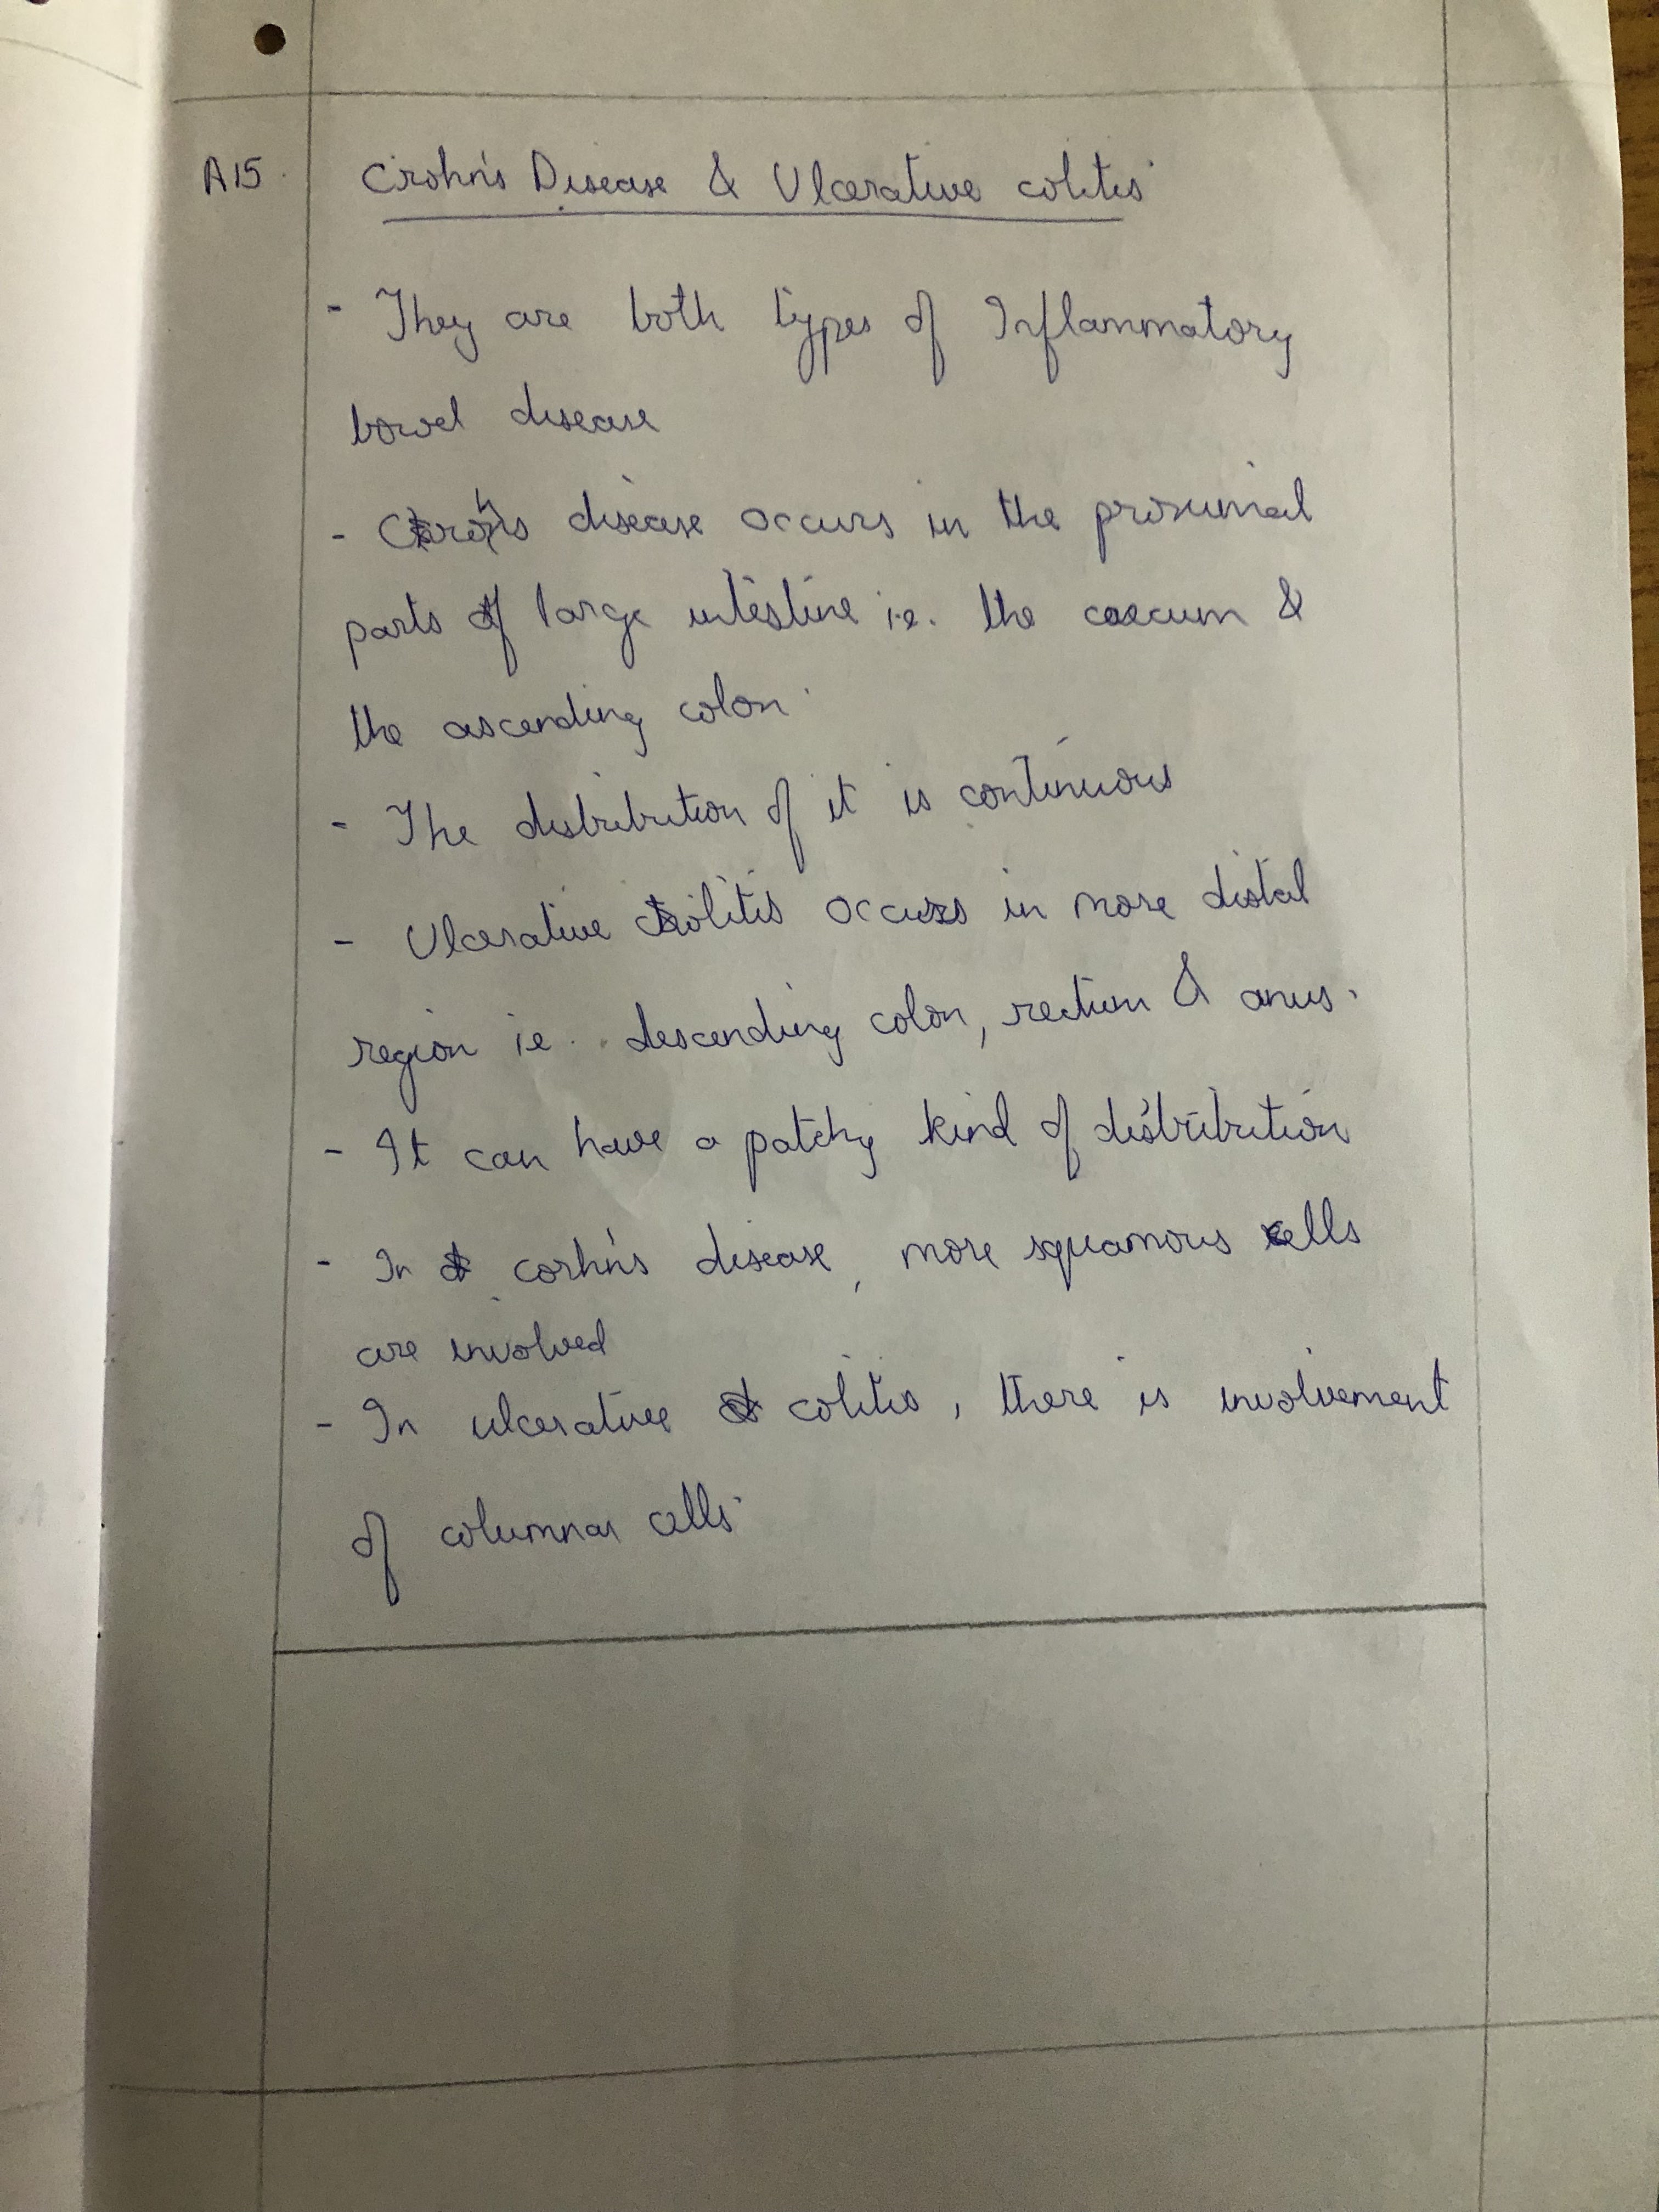 A15. Crohn's Disease & Ulcerative colitis
- They are both types of Inflammatory
bowel disease
- Crohn's disease occurs in the proximal
parts of large intestine i.e. the caecum &
the ascending colon.
- The distribution of it is continuous
- Ulcerative colitis occurs in more distal
region ie. descending colon, rectum & anus.
- It can have a patchy kind of distribution
- In corhn's disease, more squamous cells
are involved
- In ulcerative colitis, there is involvement
of columnar cells.